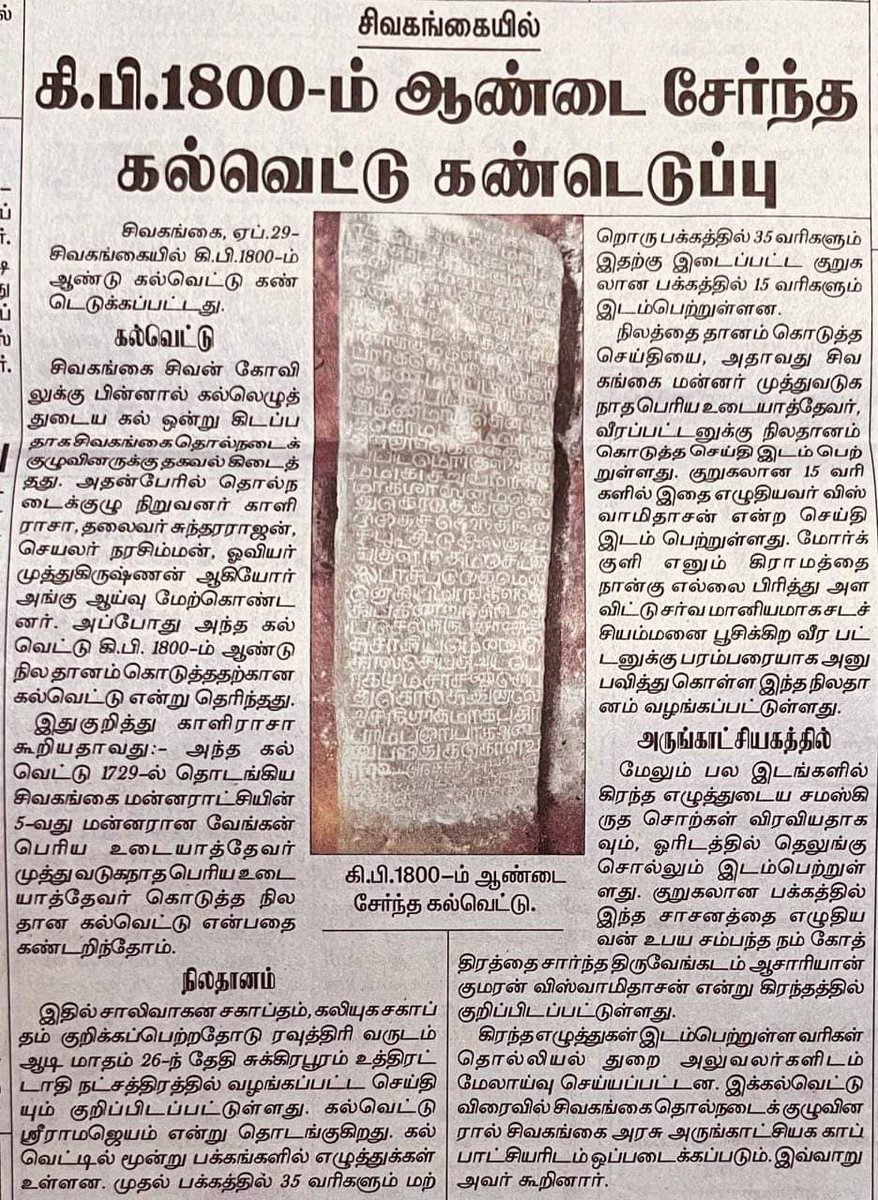 சிவகங்கையில்
கி.பி.1800-ம் ஆண்டை சேர்ந்த
கல்வெட்டு கண்டெடுப்பு
சிவகங்கை, ஏப்.29-
சிவகங்கையில் கி.பி.1800-ம்
ஆண்டு கல்வெட்டு கண்
டெடுக்கப்பட்டது.
கல்வெட்டு
சிவகங்கை சிவன் கோவி
லுக்கு பின்னால் கல்லெழுத்
துடைய கல் ஒன்று கிடப்ப
தாக சிவகங்கை தொல்நடைக்
குழுவினருக்கு தகவல் கிடைத்
தது. அதன்பேரில் தொல்ந
டைக்குழு நிறுவனர் காளி
ராசா, தலைவர் சுந்தரராஜன்,
செயலர் நரசிம்மன், ஓவியர்
முத்துகிருஷ்ணன் ஆகியோர்
அங்கு ஆய்வு மேற்கொண்ட
னர். அப்போது அந்த கல்
வெட்டு கி.பி. 1800-ம் ஆண்டு
நில தானம் கொடுத்ததற்கான
கல்வெட்டு என்று தெரிந்தது.
இதுகுறித்து காளிராசா
கூறியதாவது:- அந்த கல்
வெட்டு 1729-ல் தொடங்கிய
சிவகங்கை மன்னராட்சியின்
5-வது மன்னரான வேங்கன்
பெரிய உடையாத்தேவர்
முத்து வடுகநாத பெரிய உடை
யாத்தேவர் கொடுத்த நில
தான கல்வெட்டு என்பதை
கண்டறிந்தோம்.
நிலதானம்
இதில் சாலிவாகன சகாப்தம், கலியுக சகாப்
தம் குறிக்கப்பெற்றதோடு ரவுத்திரி வருடம்
ஆடி மாதம் 26-ந் தேதி சுக்கிரபூரம் உத்திரட்
டாதி நட்சத்திரத்தில் வழங்கப்பட்ட செய்தி
யும் குறிப்பிடப்பட்டுள்ளது. கல்வெட்டு
ஸ்ரீராமஜெயம் என்று தொடங்குகிறது. கல்
வெட்டில் மூன்று பக்கங்களில் எழுத்துக்கள்
உள்ளன. முதல் பக்கத்தில் 35 வரிகளும் மற்
கி.பி.1800-ம் ஆண்டை
சேர்ந்த கல்வெட்டு.
றொரு பக்கத்தில் 35 வரிகளும்
இதற்கு இடைப்பட்ட குறுக
லான பக்கத்தில் 15 வரிகளும்
இடம்பெற்றுள்ளன.
நிலத்தை தானம் கொடுத்த
செய்தியை, அதாவது சிவ
கங்கை மன்னர் முத்துவடுக
நாத பெரிய உடையாத்தேவர்,
வீரப்பட்டனுக்கு நிலதானம்
கொடுத்த செய்தி இடம் பெற்
றுள்ளது. குறுகலான 15 வரி
களில் இதை எழுதியவர் விஸ்
வாமிதாசன் என்ற செய்தி
இடம் பெற்றுள்ளது. மோர்க்
குளி எனும் கிராமத்தை
நான்கு எல்லை பிரித்து அள
விட்டு சர்வ மானியமாக சடச்
சியம்மனை பூசிக்கிற வீர பட்
டனுக்கு பரம்பரையாக அனு
பவித்து கொள்ள இந்த நிலதா
னம் வழங்கப்பட்டுள்ளது.
அருங்காட்சியகத்தில்
மேலும் பல இடங்களில்
கிரந்த எழுத்துடைய சமஸ்கி
ருத சொற்கள் விரவியதாக
வும், ஓரிடத்தில் தெலுங்கு
சொல்லும் இடம்பெற்றுள்
ளது. குறுகலான பக்கத்தில்
இந்த சாசனத்தை எழுதிய
வன் உபய சம்பந்த நம் கோத்
திரத்தை சார்ந்த திருவேங்கடம் ஆசாரியான்
குமரன் விஸ்வாமிதாசன் என்று கிரந்தத்தில்
குறிப்பிடப்பட்டுள்ளது.
கிரந்த எழுத்துகள் இடம்பெற்றுள்ள வரிகள்
தொல்லியல் துறை அலுவலர்களிடம்
மேலாய்வு செய்யப்பட்டன. இக்கல்வெட்டு
விரைவில் சிவகங்கை தொல்நடைக் குழுவின
ரால் சிவகங்கை அரசு அருங்காட்சியக காப்
பாட்சியரிடம் ஒப்படைக்கப்படும். இவ்வாறு
அவர் கூறினார்.